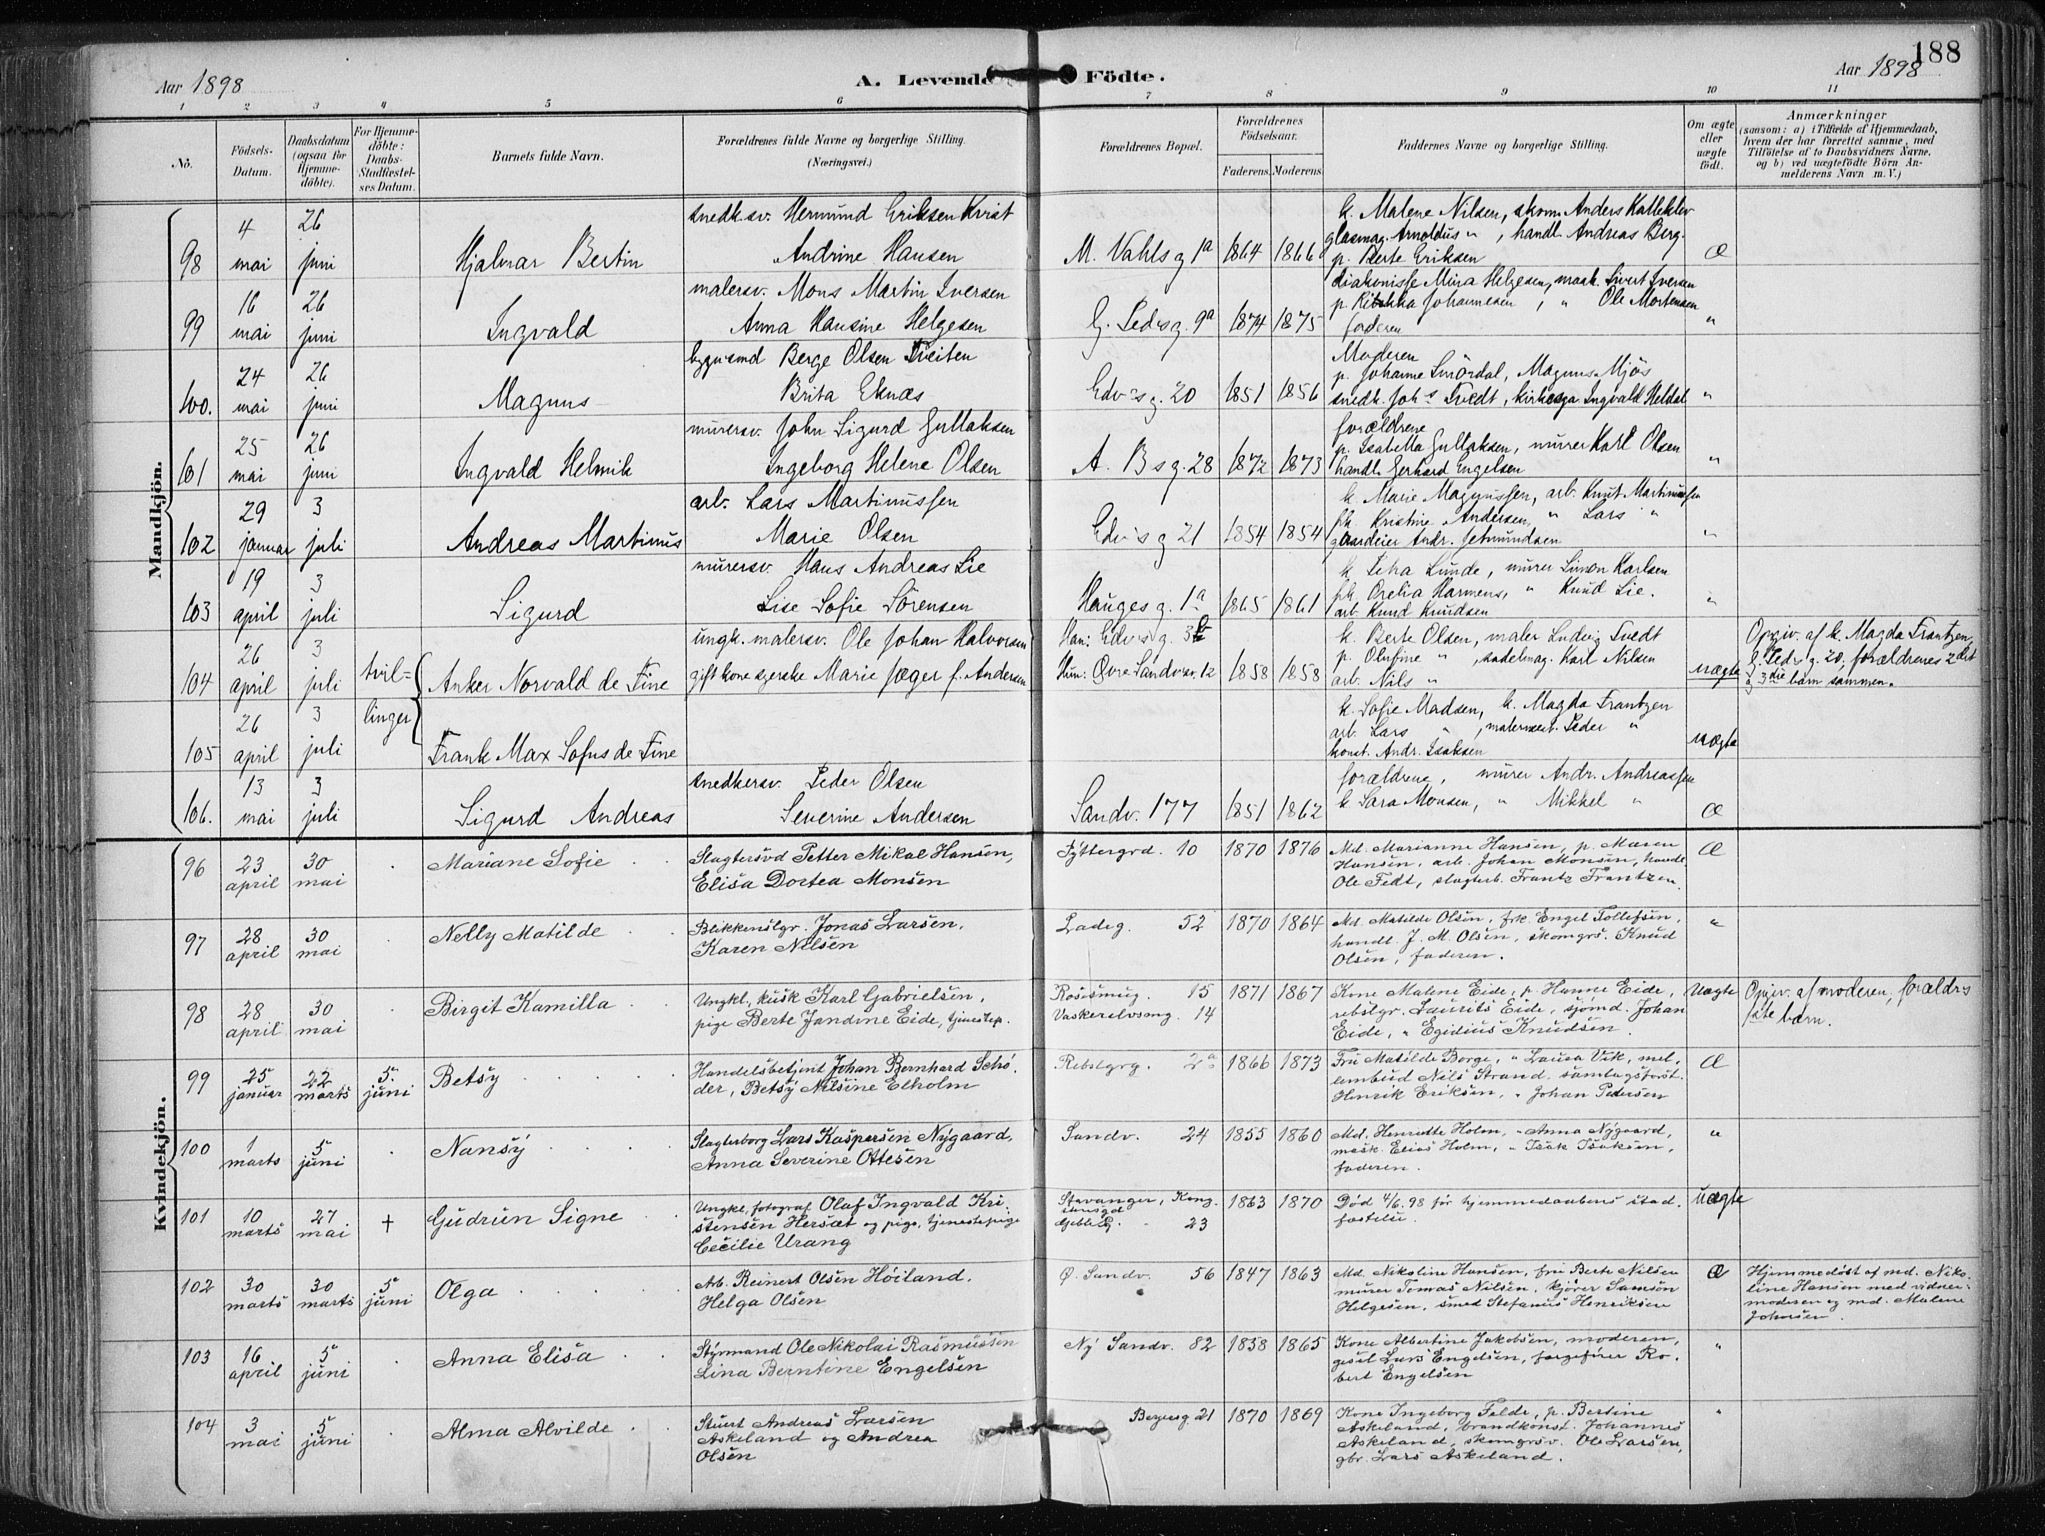 188
Aar 1898
A. Levende Födte.
Aar 1898
1 2 3 4 5 6 7 8 9 10 11
Nö.
Födsels-Datum.
Daabsdatum (ogsaa for Hjemme-döbte).
For Hjemme-döbte: Daabs-Stadfæstel-ses Datum.
Barnets fulde Navn.
Forældrenes fulde Navne og borgerlige Stilling. (Næringsvei.)
Forældrenes Bopæl.
Forældrenes Födselsaar.
Faderens. Moderens.
Faddernes Navne og borgerlige Stilling.
Om ægte eller uægte födt.
Anmærkninger
(saasom: a) i Tilfælde af Hjemmedaab, hvem der har forrettet samme, med Tilföielse af to Daabsvidners Navne, og b) ved uægtefödte Börn Anmelderens Navn m. V.)
Mandkjön.
98 4 mai 26 juni Hjalmar Bertin
snedk.sv. Hermund Eriksen Kvist
Andrine Hansen
M. Vahls g 1a 1864 1866
k. Malene Nilsen, skom. Anders Kalleklev
glasmag. Arnoldus ", handl. Andreas Berg.
p. Berte Eriksen
Æ
99 16 mai 26 juni Ingvald
malersv. Mons Martin Iversen
Anna Hansine Helgesen
G. Peds g. 9a 1874 1875
diakonisse Mina Helgesen, mask. Sivert Iversen
p. Johannesen, " Ole Mortensen
faderen
"
100. 24 mai 26 juni Magnus
bygn.smd Berge Olsen Tveiten
Brita Eknæs
Edv's g. 20 1851 1856
Moderen
p. Johanne Smördal, Magnus Mjös
snedk. Johs Tvedt, Ingvald Heldal
"
101 25 mai 26 juni Ingvald Helmik
murersv. John Sigurd Gullaksen
Ingeborg Helene Olsen
A. B s g. 28 1872 1873
forældrene
p. Isabella Gullaksen, murer Karl Olsen
handl. Gerhard Engelsen
"
102 29 januar 3 juli Andreas Martinus
arb. Lars Martinussen
Marie Olsen
Edv's g 21 1854 1854
k. Marie Magnussen, arb. Knut Martinussen
pk. Kristine Andersen, " Lars "
gaardeier Andr. Jetmundsen
"
103 19 april 3 juli Sigurd
murersv. Hans Andreas Lie
Lise Sofie Sörensen
Hauges g. 1a 1865 1861
k. Lina Lunde, murer Simon Karlsen
pk. Orelia Harmens, " Knud Lie.
arb. Knud Knudsen
"
104 26 april 3 juli tvil- Anker Norvald de Fine
ungk. malersv. Ole Johan Halvorsen
gift kone syerske Marie Jæger f. Andersen
Han: Edv's g. 3
Hun: Øvre Sandv.sv. 12 1858 1858
k. Berte Olsen, maler Ludvig Tvedt
p. Olufine ", sadelmag. Karl Nilsen
arb. Nils "
uægte
Opgiv. af k. Magda Frantzen,
g. 20, forældrenes 2det
og 3die barn sammen.
105 26 april 3 juli linger Frank Max Sofus de Fine
k. Sofie Madsen, k. Magda Frantzen
arb. Lars ", malermest. Peder "
konst. Andr. Isaksen
uægte
106. 13 mai 3 juli Sigurd Andreas
snedkersv. Peder Olsen
Severine Andersen
Sandv. 177 1851 1862
forældrene, murer Andr. Andreassen
k. Sara Monsen, " Mikkel "
Æ
Kvindekjön.
96 23 april 30 mai Mariane Sofie
Slagtersvd Petter Mikal Hansen,
Elisa Dortea Monsen
Tyttergrd. 10 1870 1876
Md. Marianne Hansen, p. Maren
Hansen, arb. Johan Monsen, handl.
Ole Fedt, slagterb. Frantz Frantzen.
Æ
97 28 april 30 mai Nelly Matilde
Blikkenslgr. Jonas Larsen,
Karen Nilsen
Ladeg. 52 1870 1864
Md. Matilde Olsen, frk. Engel Tollefsen,
handl. J. M. Olsen, skomgrs. Knud
Olsen, faderen.
"
98 28 april 30 mai Birgit Kamilla
Ungkl. kusk Karl Gabrielsen,
pige Berte Jandine Eide, tjenestep.
Rosesmug. 15
Vaskerelvsmg. 14 1871 1867
Kone Malene Eide, p. Hanne Eide,
rebslgr. Laurits Eide, sjömd. Johan
Eide, " Egidius Knudsen.
Uægte
Opgiv. af moderen, forældr's
1ste barn.
99 25 januar 22 marts 5. juni Betsy
Handelsbetjent Johan Bernhard Schrö-
der, Betsy Nilsine Elholm
Rebslgrg. 2a 1866 1873
Fru Matilde Borge, " Laura Vik, mel-
embud Nils Strand, samlagsforst.
Henrik Eriksen, " Johan Pedersen
Æ
100 1 marts 5 juni Nansy
Slagterborg Lars Kaspersen Nygaard,
Anna Severine Ottesen
Sandv. 24 1855 1860
Md. Henrette Holm, " Anna Nygaard,
mask. Elias Holm, " Isak Isaksen,
faderen.
"
101 10 marts 27 mai † Gudrun Signe
Ungkl. fotograf Olaf Ingvald Kri-
stensen Hersæt og pige, tjenestepige
Cecilie Urang
Stavanger, Kong-
Gjebleg. 23 1863 1870
Död 4/6 98 för hjemmedaabens stad-
fæstelse.
Uægte
102 30 marts 30 marts 5 juni Olga
Arb. Reinert Olsen Höiland,
Helga Olsen
Ø. Sandv. 56 1847 1863
Md. Nikoline Hansen, fru Berte Nilsen
murer Tomas Nilsen, kjörer Samson
Helgesen, smed Stefanus Henriksen
Æ
Hjemmedöbt af md. Niko-
line Hansen med vidner:
moderen og md. Malene
Johnsen.
103 16 april 5 juni Anna Elisa
Styrmand Ole Nikolai Rasmussen
Lina Berntine Engelsen
Ny Sandv. 82 1858 1865
Kone Albertine Jakobsen, moderen,
gesel Lars Engelsen, færgefører Ro-
bert Engelsen
"
104 3 mai 5 juni Alma Alvilde
Stuert Andreas Larsen
Askeland og Andrea
Olsen
Bergesg. 21 1870 1869
Kone Ingeborg Felde, p. Bertine
Askeland, brandkonst. Johannes
Askeland, skomgrsv. Ole Larsen,
gbr. Lars Askeland.
"